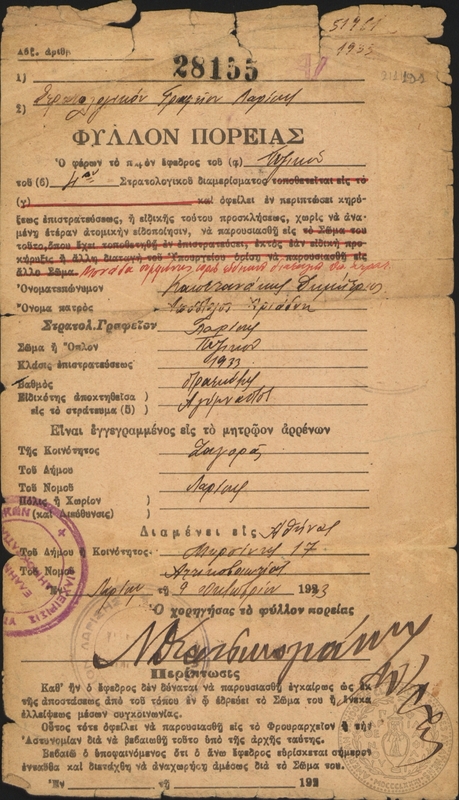 51981
1933
Αὔξ. ἀριθμ
28155
1)
2) Στρατολογικόν Γραφεῖον Λαρίσης
ΦΥΛΛΟΝ ΠΟΡΕΙΑΣ
Ὁ φέρων τὸ παρὸν ἔφεδρος τοῦ (α) Πεζικοῦ
τοῦ (β) Στρατολογικοῦ διαμερίσματος τοποθετεῖται εἰς τὸ
(γ) καὶ ὀφείλει ἐν περιπτώσει κηρύ-
ξεως ἐπιστρατεύσεως, ἢ εἰδικῆς τούτου προσκλήσεως, χωρὶς νὰ ἀνα-
μένῃ ἑτέραν ἀτομικὴν εἰδοποίησιν, νὰ παρουσιασθῇ εἰς τὸ Σῶμα του
τοῦτο, ὅπου ἔχει τοποθετηθῇ ἐν ἐπιστρατεύσει, ἐκτὸς ἐὰν εἰδικὴ προ-
κήρυξις ἢ ἄλλη διαταγὴ τοῦ Ὑπουργείου ὁρίσῃ νὰ παρουσιασθῇ εἰς
ἄλλο Σῶμα.
Ὀνοματεπώνυμον Δημήτριος
Ὄνομα πατρὸς Ἀπόστολος
Στρατολ. Γραφεῖον Λαρίσης
Σῶμα ἢ Ὅπλον Πεζικοῦ
Κλάσις ἐπιστρατεύσεως 1933
Βαθμὸς Στρατιώτης
Εἰδικότης ἀποκτηθεῖσα )
εἰς τὸ στράτευμα (δ) ) Ἀγύμναστος
Εἶναι ἐγγεγραμμένος εἰς τὸ μητρῷον ἀρρένων
Τῆς Κοινότητος Ζαγορᾶς
Τοῦ Δήμου
Τοῦ Νομοῦ Λαρίσης
Πόλις ἢ Χωρίον )
(καὶ Διεύθυνσις) )
Διαμένει εἰς Ἀθήνας
Τοῦ Δήμου ἢ Κοινότητος 17
Τοῦ Νομοῦ Ἀττικοβοιωτίας
Ἐν Λαρίσῃ τῇ 9 Ὀκτωβρίου 1933
Ὁ χορηγήσας τὸ φύλλον πορείας
Περίπτωσις
Καθ' ἣν ὁ ἔφεδρος δὲν δύναται νὰ παρουσιασθῇ ἐγκαίρως ὡς ἐκ
τῆς ἀποστάσεως ἀπὸ τοῦ τόπου ἐν ᾧ ἑδρεύει τὸ Σῶμα του ἢ ἕνεκα
ἐλλείψεως μέσων συγκοινωνίας.
Οὗτος τότε ὀφείλει νὰ παρουσιασθῇ εἰς τὸ Φρουραρχεῖον ἢ τὴν
Ἀστυνομίαν διὰ νὰ βεβαιωθῇ τοῦτο ὑπὸ τῆς ἀρχῆς ταύτης.
Βεβαιῶ ὁ ὑποφαινόμενος ὅτι ὁ ἄνω ἔφεδρος εὑρίσκεται σήμερον
ἐνταῦθα καὶ διετάχθη νὰ ἀναχωρήσῃ ἀμέσως διὰ τὸ Σῶμα του.
Ἐν τῇ 192